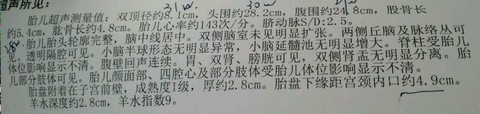 超声所见:
31w 30w
胎儿超声测量值: 双顶径约8.1cm, 头围约28.2cm, 腹围约24.8cm, 股骨长
约5.4cm, 肱骨长约4.8cm。胎儿心率约143次/分。脐动脉S/D:2.5。
胎儿胎头轮廓完整, 脑中线居中。双侧脑室未见明显扩张。两侧丘脑及脉络丛可
见, 透明隔腔可见, 小脑半球形态无明显异常, 小脑延髓池无明显增大。脊柱受胎儿
体位影响显示不清。腹壁回声连续。胃、双肾、膀胱可见, 双侧肾盂无明显分离。胎
儿部分肢体可见。胎儿颜面部、四腔心及部分肢体受胎儿体位影响显示不清。
胎盘附着在子宫前壁, 成熟度I级, 厚约2.8cm。胎盘下缘距宫颈内口约4.9cm。
羊水深度约2.8cm, 羊水指数9。